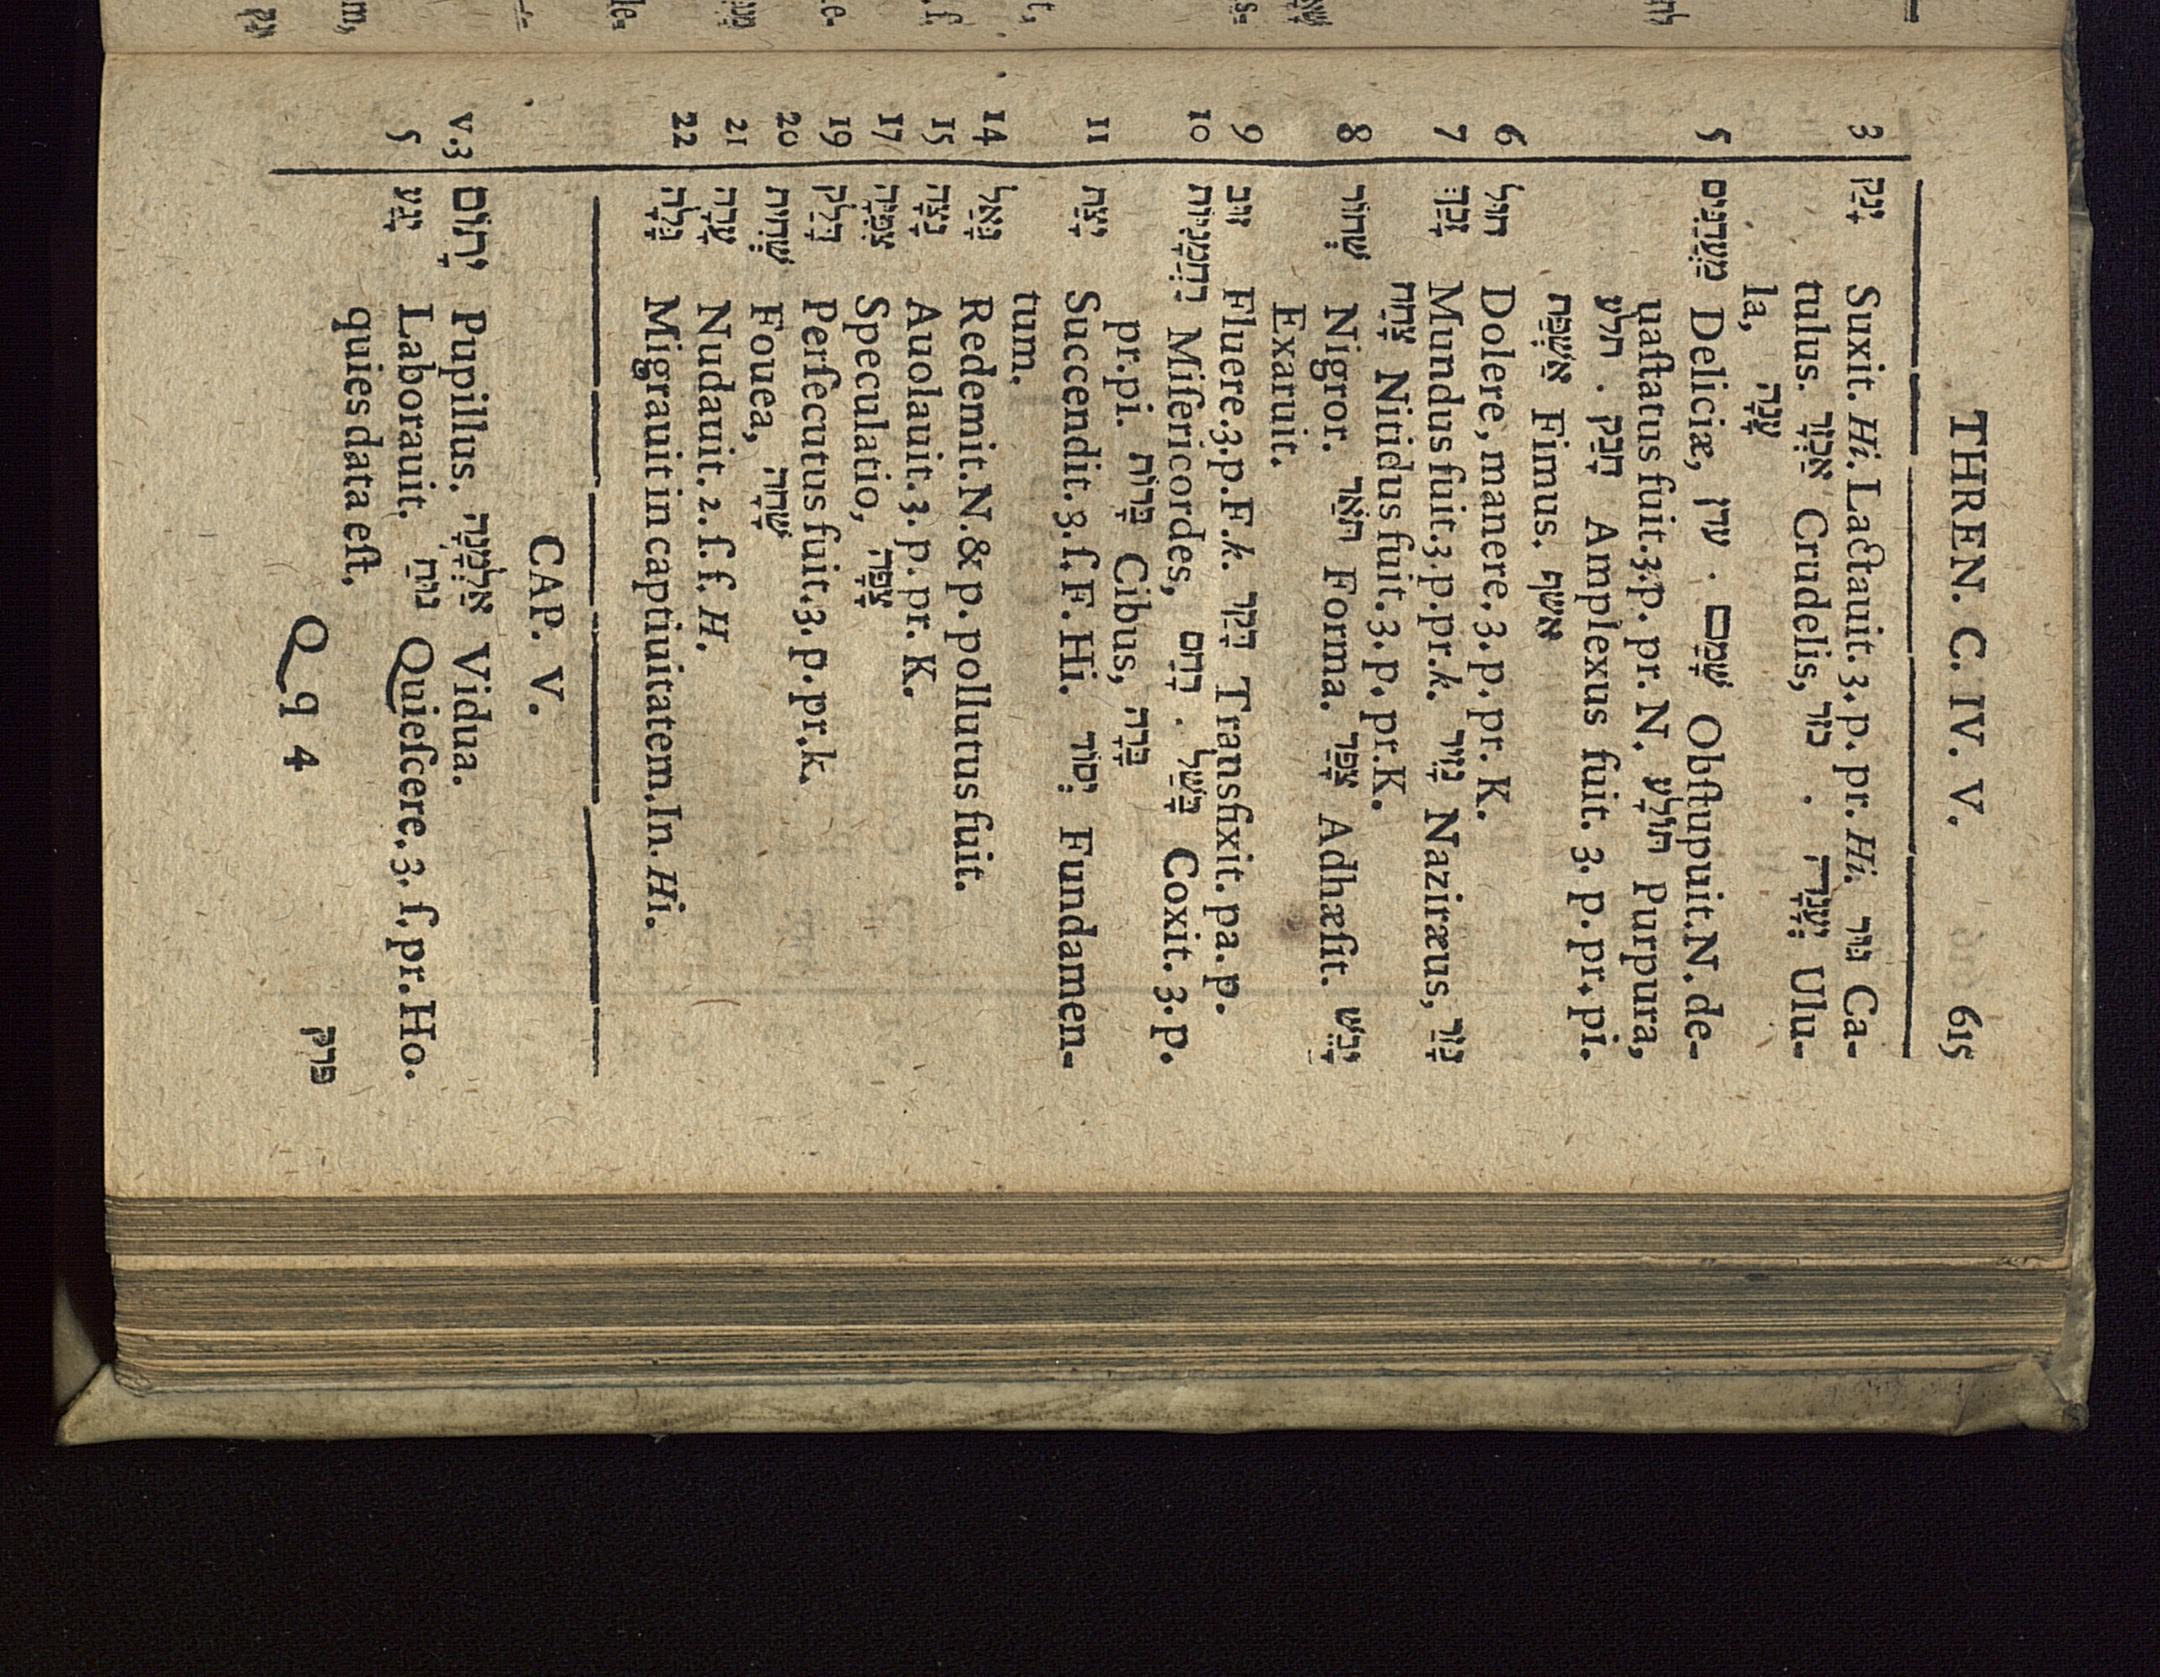 THREN. C. IV. V. 615
3 יָנַק Suxit. Hi. Lactauit. 3. p. pr. Hi. גּוּר Ca-
tulus. אַכְזָר Crudelis, כזר . יַעֲנָה Ulu-
la, עָנָה
5 מַעֲדַנִּים Deliciæ, עדן . שָׁמֵם Obſtupuit. N. de-
uaſtatus fuit. 3. p. pr. N. תּוֹלָע Purpura,
תלע . חָבַק Amplexus fuit. 3. p. pr. pi.
אַשְׁפֹּת Fimus. אשף
6 חוּל Dolere, manere. 3. p. pr. K.
7 זָכַךְ Mundus fuit. 3. p. pr. k. נָזִיר Naziræus, נָזַר
צָחַח Nitidus fuit. 3. p. pr. K.
8 שְׁחוֹר Nigror. תֹּאַר Forma. צָפַד Adhæſit. יָבֵשׁ
Exaruit.
9 זוּב Fluere. 3. p. F. k. דָּקַר Transfixit. pa. p.
10 רַחֲמָנִיּוֹת Miſericordes, רָחַם . בָּשַׁל Coxit. 3. p.
pr. pi. בָּרוֹת Cibus, בָּרָה
11 יָצַת Succendit. 3. ſ. F. Hi. יְסוֹד Fundamen-
tum.
14 גָּאַל Redemit. N. & p. pollutus fuit.
15 נָצָה Auolauit. 3. p. pr. K.
17 צְפִיָּה Speculatio, צָפָה
19 דָּלַק Perſecutus fuit. 3. p. pr. k.
20 שְׁחִית Fouea, שָׁחָה
21 עָרָה Nudauit. 2. ſ. f. H.
22 גָּלָה Migrauit in captiuitatem. In. Hi.
CAP. V.
V. 3 יָתוֹם Pupillus. אַלְמָנָה Vidua.
5 יָגַע Laborauit. נוּחַ Quieſcere. 3. ſ. pr. Ho.
quies data eſt,
Qq 4 פרק